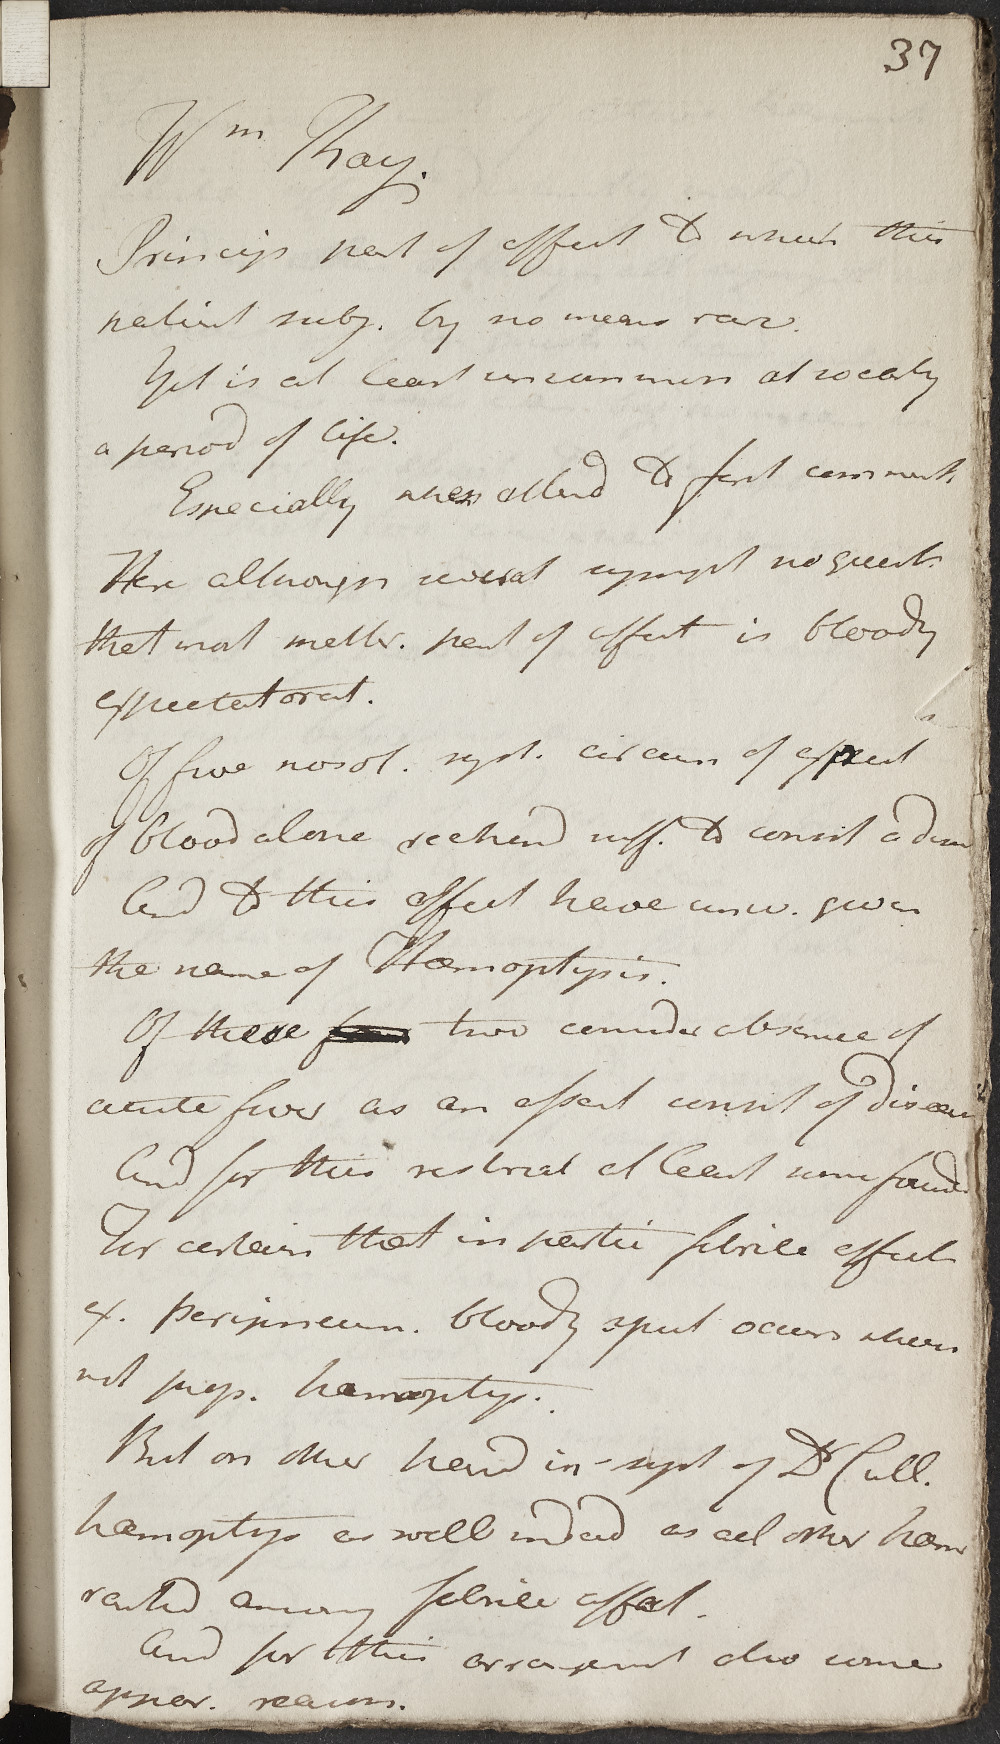 37
Wm Thay.
Princip part of affect to which this
patient subj. by no means rare.
Yet is at least uncommon at so early
a period of life.
Especially when attend to first commenct
Here although several sympt no quest.
that most mater. part of affect is bloody
expectorat.
Of five nosol. syst. circum of expect
of blood alone reckend suff. to constit a dise
And to this affect have univ. given
the name of Hæmoptysis.
Of these two consider absence of
acute fever as an essent constit of disease
And for this restrict at least some found
For certain that in partic febrile affect
ex. peripneum. bloody sput occurs when
not prop. hæmoptys.
But on other hand in syst of Dr Cull.
hæmoptys as well indeed as all other hæm
ranked among febrile affect.
And for this arrangemt also some
appar. reason.